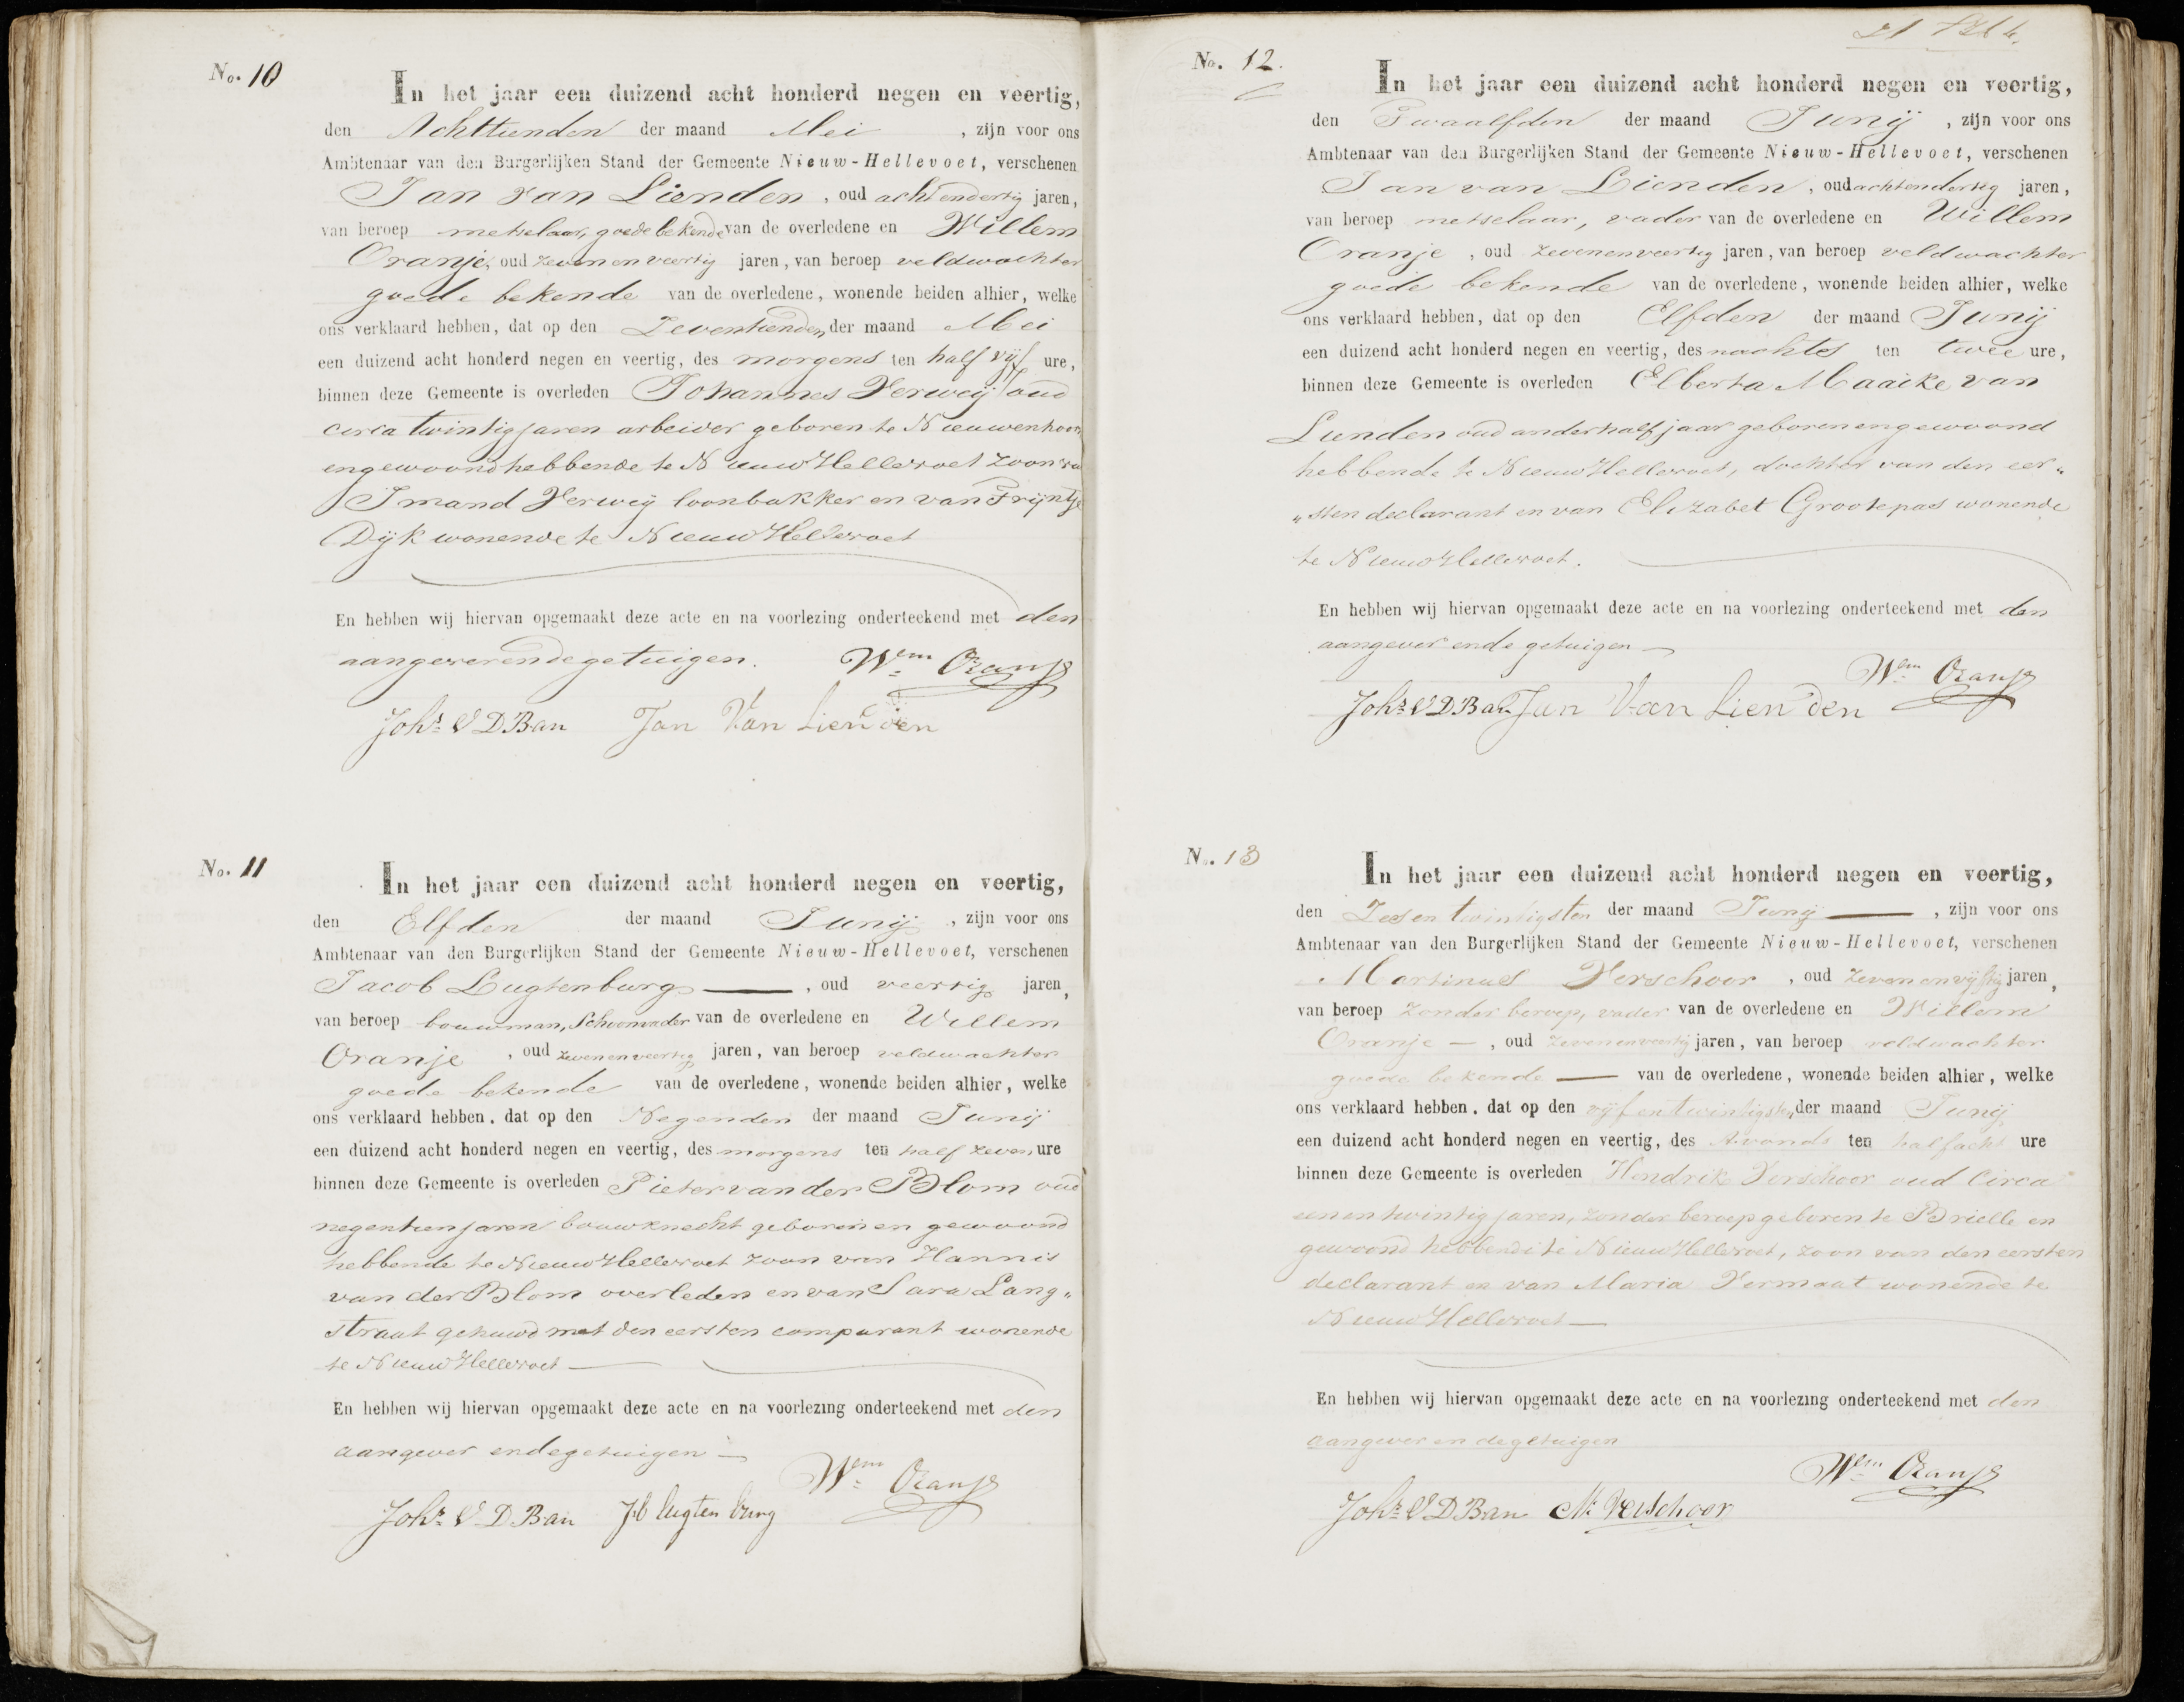 No. 10
In het jaar een duizend acht honderd negen en veertig,
den Achttienden der maand Mei , zijn voor ons
Ambtenaar van den Burgerlijken Stand der Gemeente Nieuw-Hellevoet, verschenen
Jan van Lienden , oud achtendertig jaren,
van beroep metselaar, goede bekende van de overledene en Willem
Oranje, oud zevenenveertig jaren, van beroep veldwachter
goede bekende van de overledene, wonende beiden alhier, welke
ons verklaard hebben, dat op den Zeventienden der maand Mei
een duizend acht honderd negen en veertig, des morgens ten half vijf ure,
binnen deze Gemeente is overleden Johannes Verweij oud
circa twintig jaren arbeider geboren te Nieuwenhoorn
en gewoond hebbende te Nieuw Hellevoet zoon van
Imand Verweij loonbakker en van Trijntje
Dijk wonende te Nieuw Hellevoet
En hebben wij hiervan opgemaakt deze acte en na voorlezing onderteekend met den
aangever en de getuigen.
Wem Oranje
Johs V D Ban Jan Van Lienden
No. 11
In het jaar een duizend acht honderd negen en veertig,
den Elfden der maand Junij , zijn voor ons
Ambtenaar van den Burgerlijken Stand der Gemeente Nieuw-Hellevoet, verschenen
Jacob Lugtenburg — , oud veertig jaren,
van beroep bouwman, Schoonvader van de overledene en Willem
Oranje , oud zevenenveertig jaren, van beroep veldwachter
goede bekende van de overledene, wonende beiden alhier, welke
ons verklaard hebben, dat op den Negenden der maand Junij
een duizend acht honderd negen en veertig, des morgens ten half zeven, ure
binnen deze Gemeente is overleden Pieter van der Blom oud
negentien jaren bouwknecht geboren en gewoond
hebbende te Nieuw Hellevoet zoon van Hannis
van der Blom overleden en van Sara Lang„
straat gehuwd met den eersten comparant wonende
te Nieuw Hellevoet —
En hebben wij hiervan opgemaakt deze acte en na voorlezing onderteekend met den
aangever en de getuigen —
Wem Oranje
Johs V D Ban Jb lugtenburg
No. 12.
In het jaar een duizend acht honderd negen en veertig,
den Twaalfden der maand Junij , zijn voor ons
Ambtenaar van den Burgerlijken Stand der Gemeente Nieuw-Hellevoet, verschenen
Jan van Lienden , oud achtendertig jaren,
van beroep metselaar, vader van de overledene en Willem
Oranje , oud zevenenveertig jaren, van beroep veldwachter
goede bekende van de overledene, wonende beiden alhier, welke
ons verklaard hebben, dat op den Elfden der maand Junij
een duizend acht honderd negen en veertig, des nachts ten twee ure,
binnen deze Gemeente is overleden Elberta Maaike van
Lienden oud anderhalf jaar geboren en gewoond
hebbende te Nieuw Hellevoet, dochter van den eer„
„sten declarant en van Elizabet Grootepas wonende
te Nieuw Hellevoet.
En hebben wij hiervan opgemaakt deze acte en na voorlezing onderteekend met den
aangever en de getuigen —
Wem Oranje
Johs V D Ban Jan Van Lienden
No. 13
In het jaar een duizend acht honderd negen en veertig,
den Zesentwintigsten der maand Junij — , zijn voor ons
Ambtenaar van den Burgerlijken Stand der Gemeente Nieuw-Hellevoet, verschenen
Martinus Verschoor , oud zevenenvijftig jaren,
van beroep zonder beroep, vader van de overledene en Willem
Oranje — , oud zevenenveertig jaren, van beroep veldwachter
goede bekende — van de overledene, wonende beiden alhier, welke
ons verklaard hebben, dat op den vijfentwintigsten der maand Junij
een duizend acht honderd negen en veertig, des Avonds ten half acht ure
binnen deze Gemeente is overleden Hendrik Verschoor oud Circa
eenentwintig jaren, zonder beroep geboren te Brielle en
gewoond hebbende te Nieuw Hellevoet, zoon van den eersten
declarant en van Maria Vermaat wonende te
Nieuw Hellevoet —
En hebben wij hiervan opgemaakt deze acte en na voorlezing onderteekend met den
aangever en de getuigen
Wem Oranje
Johs V D Ban M. Verschoor